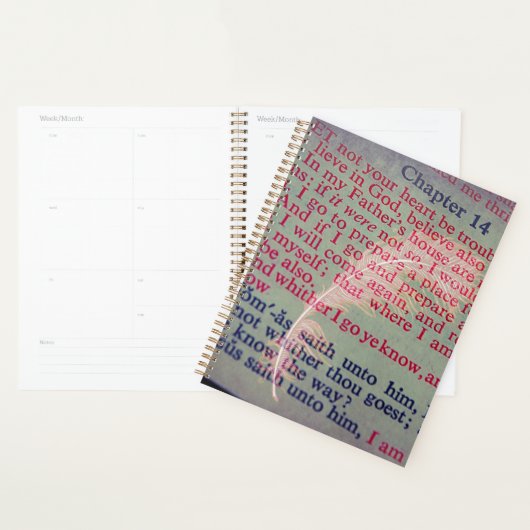 Week/Month:
Week/Month:
Notes
ed me thr
Chapter 14
ET not your heart be troub
lieve in God, believe also
In my Father's house are
ns: if it were not so, I woul
I go to prepare a place
And if I go and prepare a
I will come again, and r
myself; that where I am
be also.
nd whither I go ye know, an
ow
ŏm′-ăs saith unto him,
not whither thou goest;
know the way?
sŭs saith unto him, I am